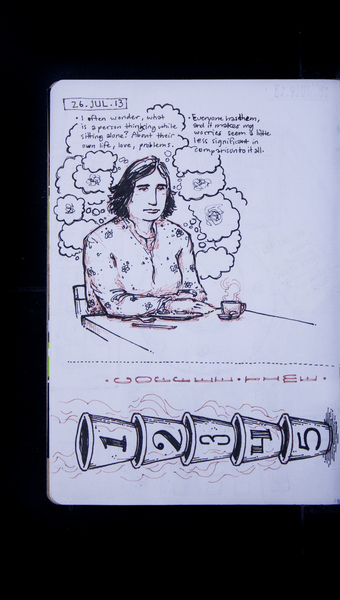 26.JUL.13
• I often wonder, what
is a person thinking while
sitting alone? About their
own life, love, problems.
• Everyone has them,
and it makes my
worries seem a little
less significant in
comparison to it all.
• COFFEE • TIME •
1 2 3 4 5